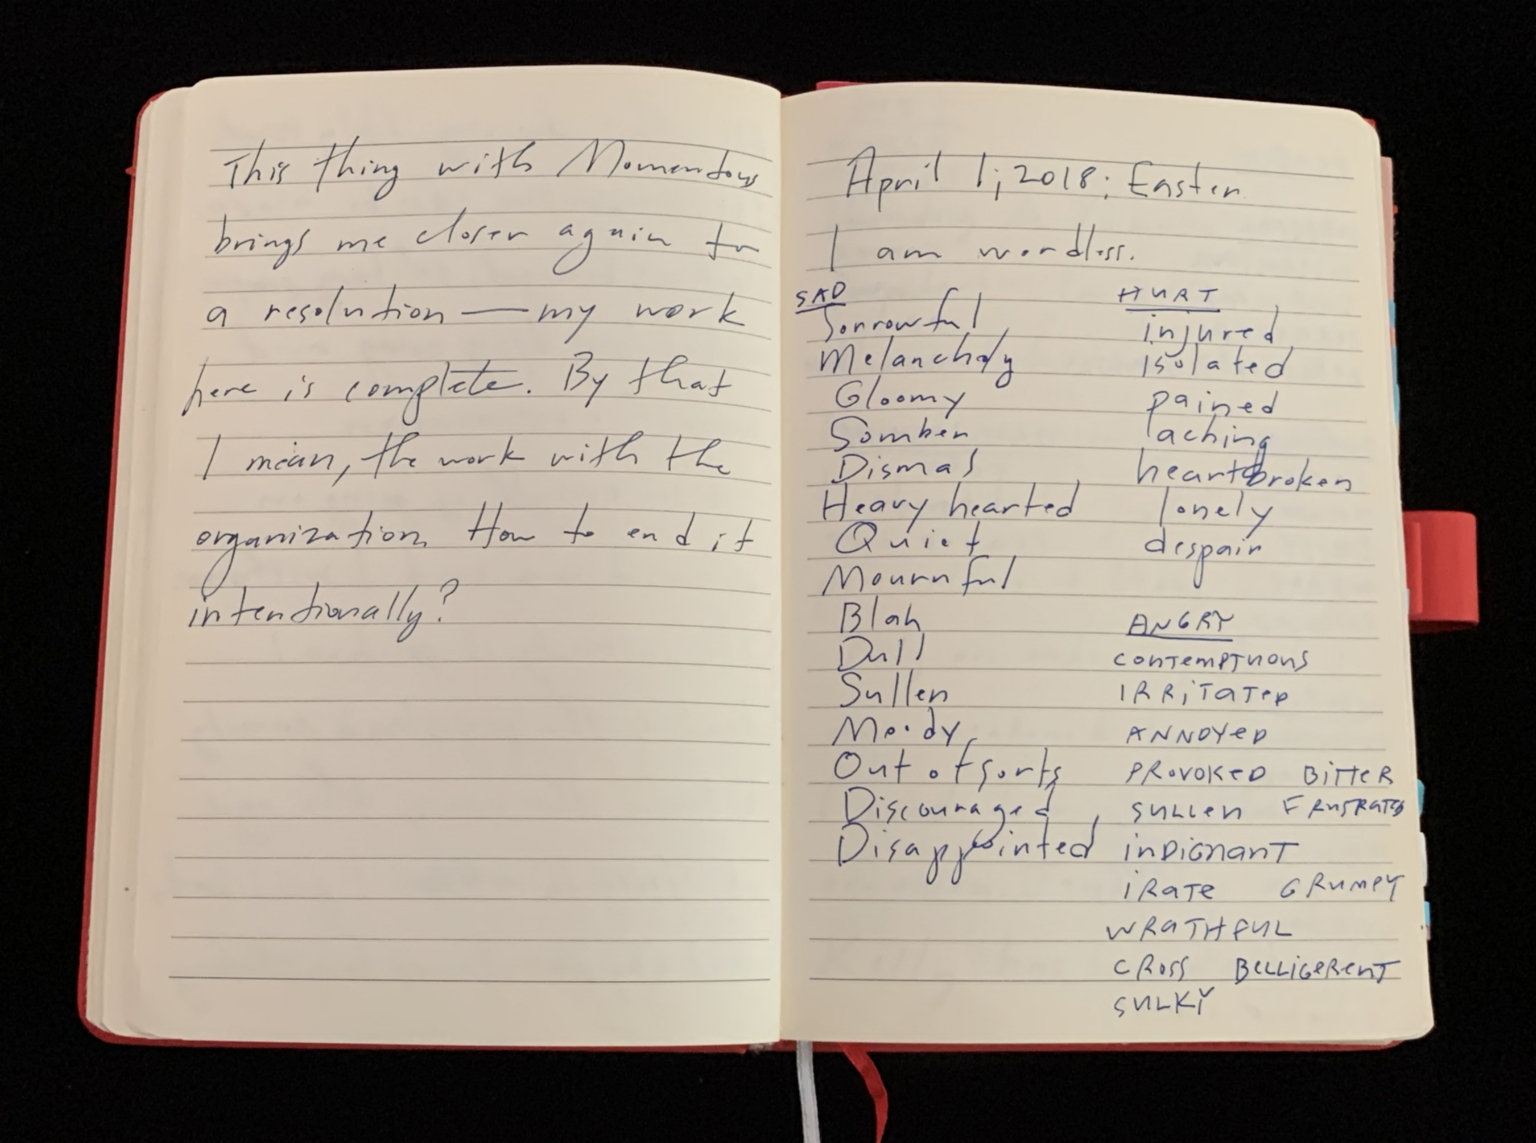 This thing with Momentous
brings me closer again to
a resolution — my work
here is complete. By that
I mean, the work with the
organization. How to end it
intentionally?
April 1, 2018: Easter
I am wordless.
SAD
Sorrowful
Melancholy
Gloomy
Somber
Dismal
Heavy hearted
Quiet
Mournful
Blah
Dull
Sullen
Moody
Out of sorts
Discouraged
Disappointed
HURT
injured
isolated
pained
aching
heartbroken
lonely
despair
ANGRY
CONTEMPTUOUS
IRRITATED
ANNOYED
PROVOKED BITTER
SULLEN FRUSTRATED
INDIGNANT
IRATE GRUMPY
WRATHFUL
CROSS BELLIGERENT
SULKY